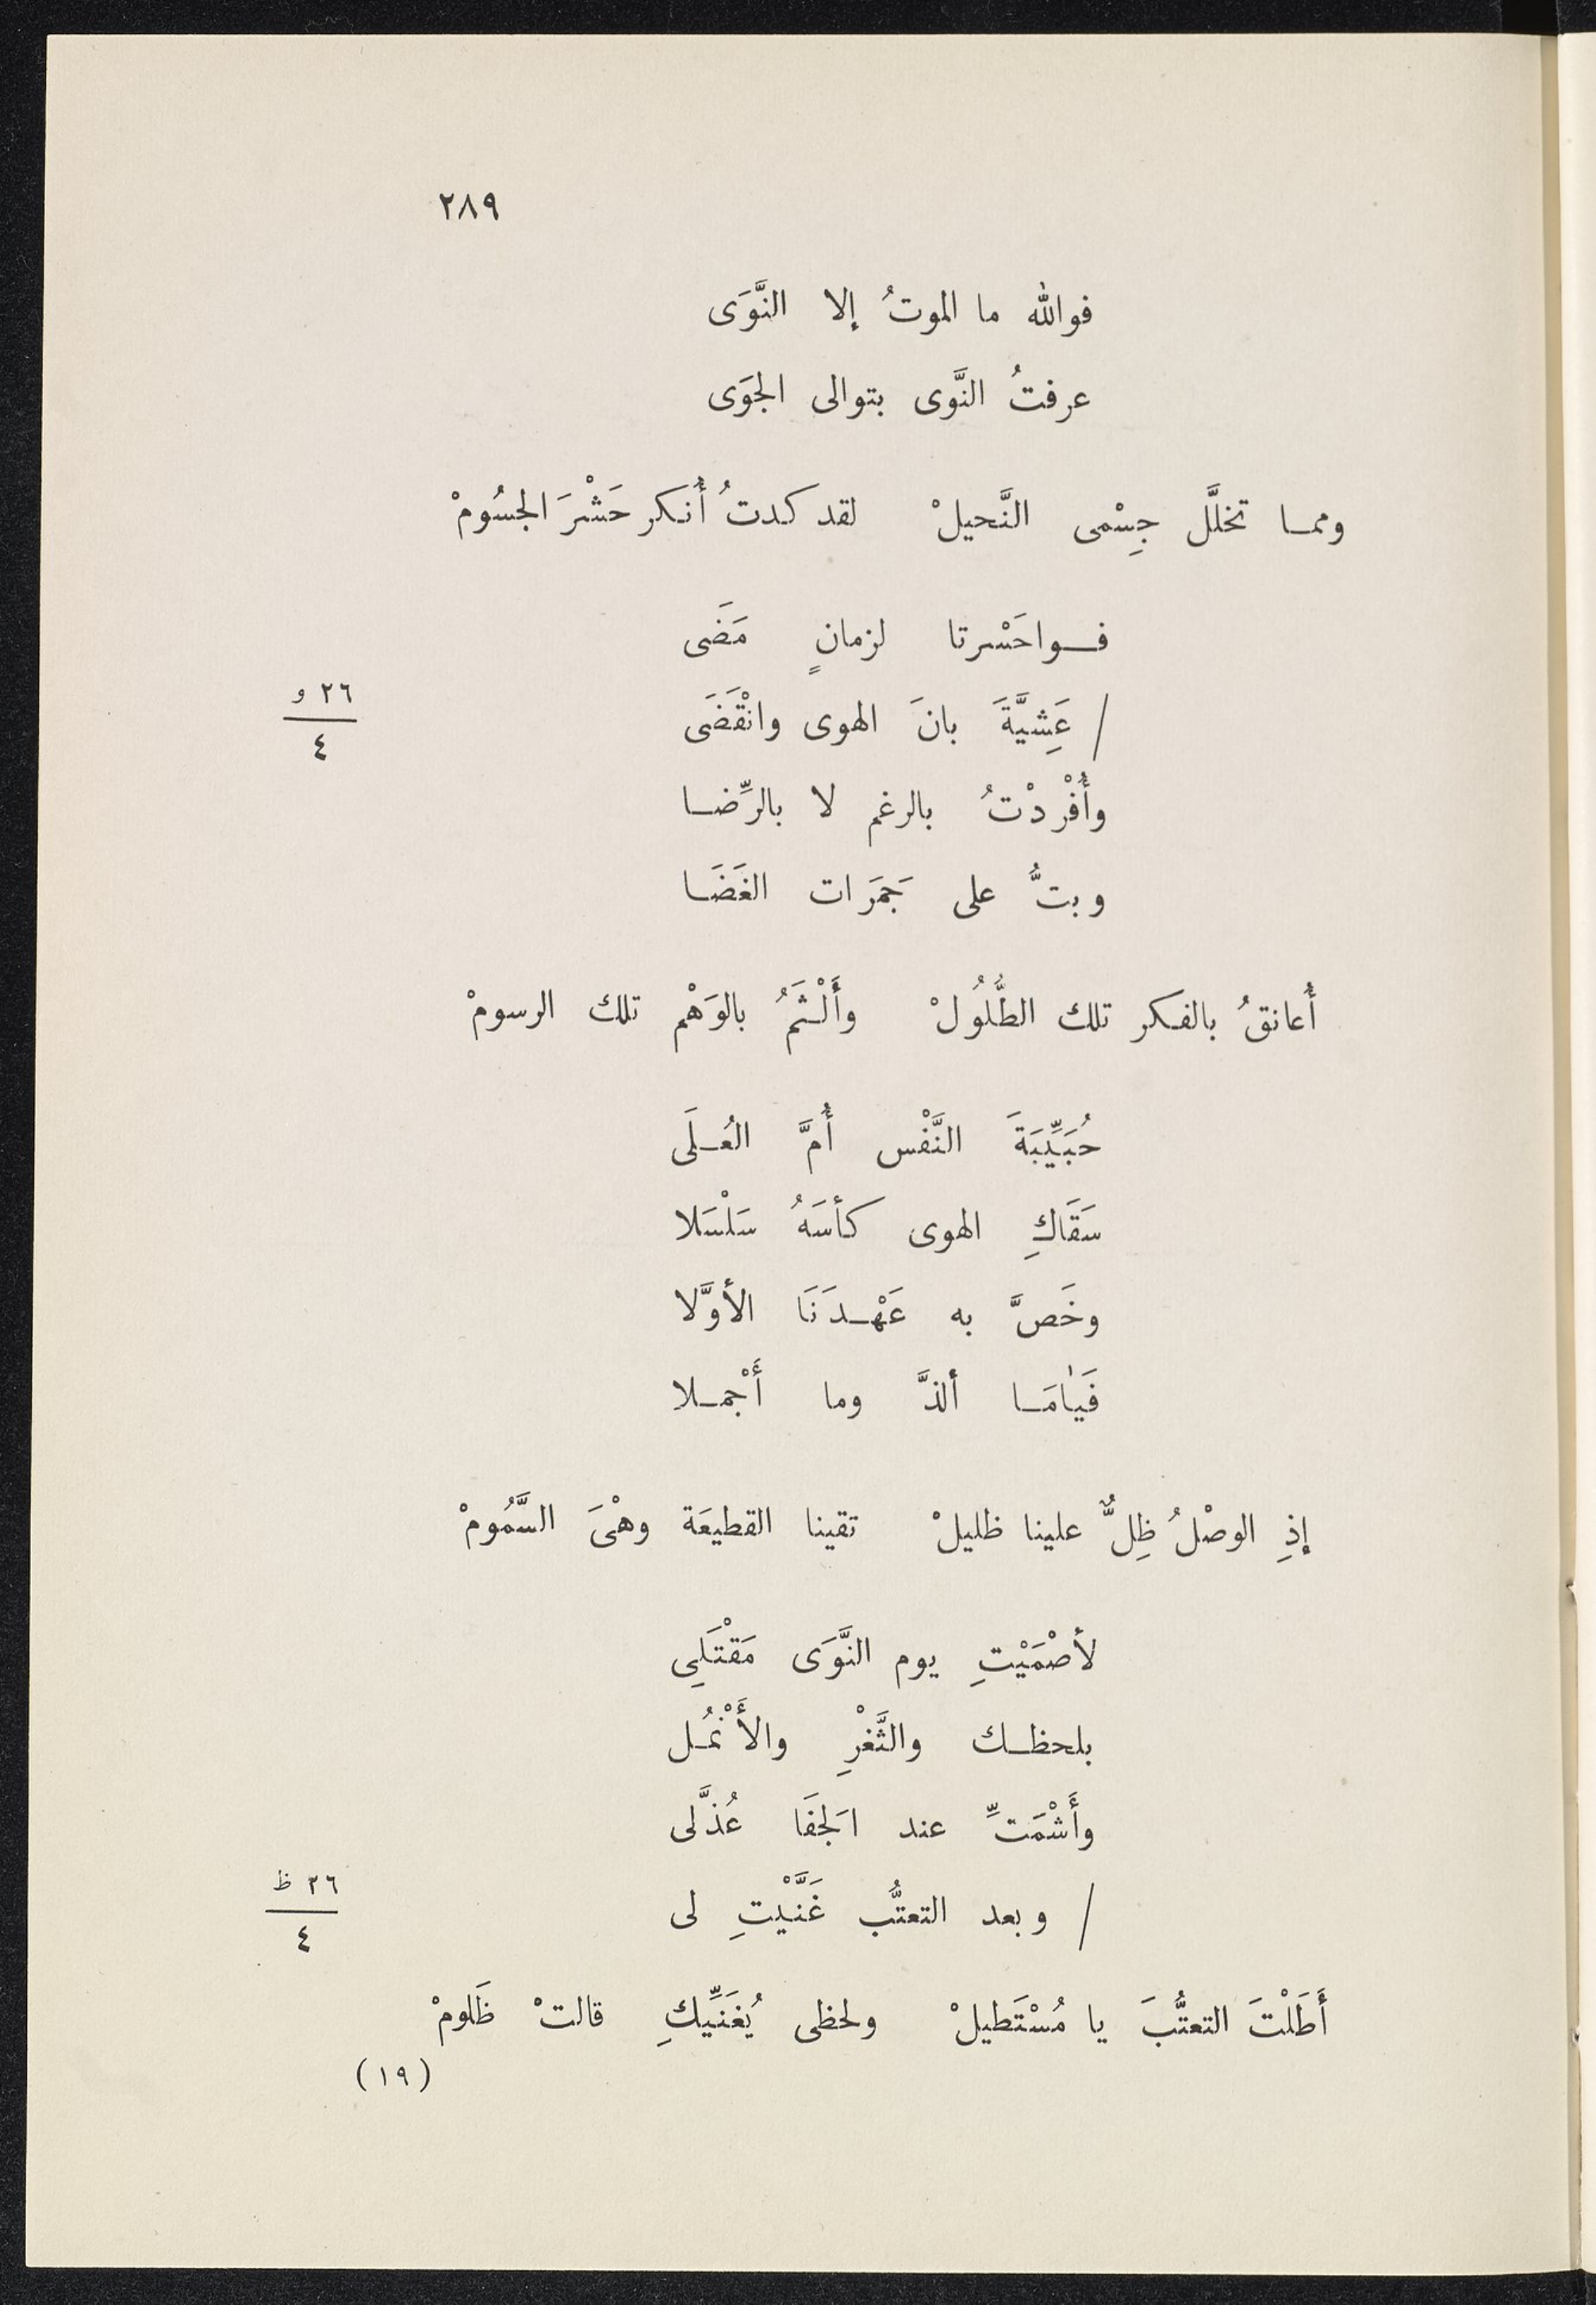 ٢٨٩
فوالله ما الموتُ إلا النَّوَى
عرفتُ النَّوى بتوالى الجوَى
ومما تخلَّل جِسْمى النَّحيلْ لقد كدتُ أُنكر حَشْرَ الجسُومْ
فواحَسْرتا لزمانٍ مَضَى
/ عَشِيَّةَ بانَ الهوى وانْقَضَى
٢٦ و
٤
وأُفْرِدْتُ بالرغم لا بالرِّضا
وبتُّ على جَمَرَات الغَضَا
أُعانقُ بالفكر تلك الطُّلُولْ وأَلْثَمُ بالوَهْم تلك الرسومْ
حُبَيِّبَةَ النَّفْس أُمَّ العُلَى
سَقَاكِ الهوى كأسَهُ سَلْسَلا
وخَصَّ به عَهْدَنَا الأوَّلا
فَيٰامَا ألذَّ وما أَجْملا
إذِ الوصْلُ ظِلٌّ علينا ظليلْ تقينا القطيعَة وهْىَ السَّمُومْ
لأصْمَيْتِ يوم النَّوَى مَقْتَلِى
بلحظك والثَّغْرِ والأَنْمُل
وأَشْمَتِّ عند الجَفَا عُذَّلى
/ وبعد التعتُّب غَنَّيْتِ لى
٢٦ ظ
٤
أَطَلْتَ التعتُّبَ يا مُسْتَطيلْ ولحظى يُغَنِّيكِ قالتْ ظَلومْ
(١٩)